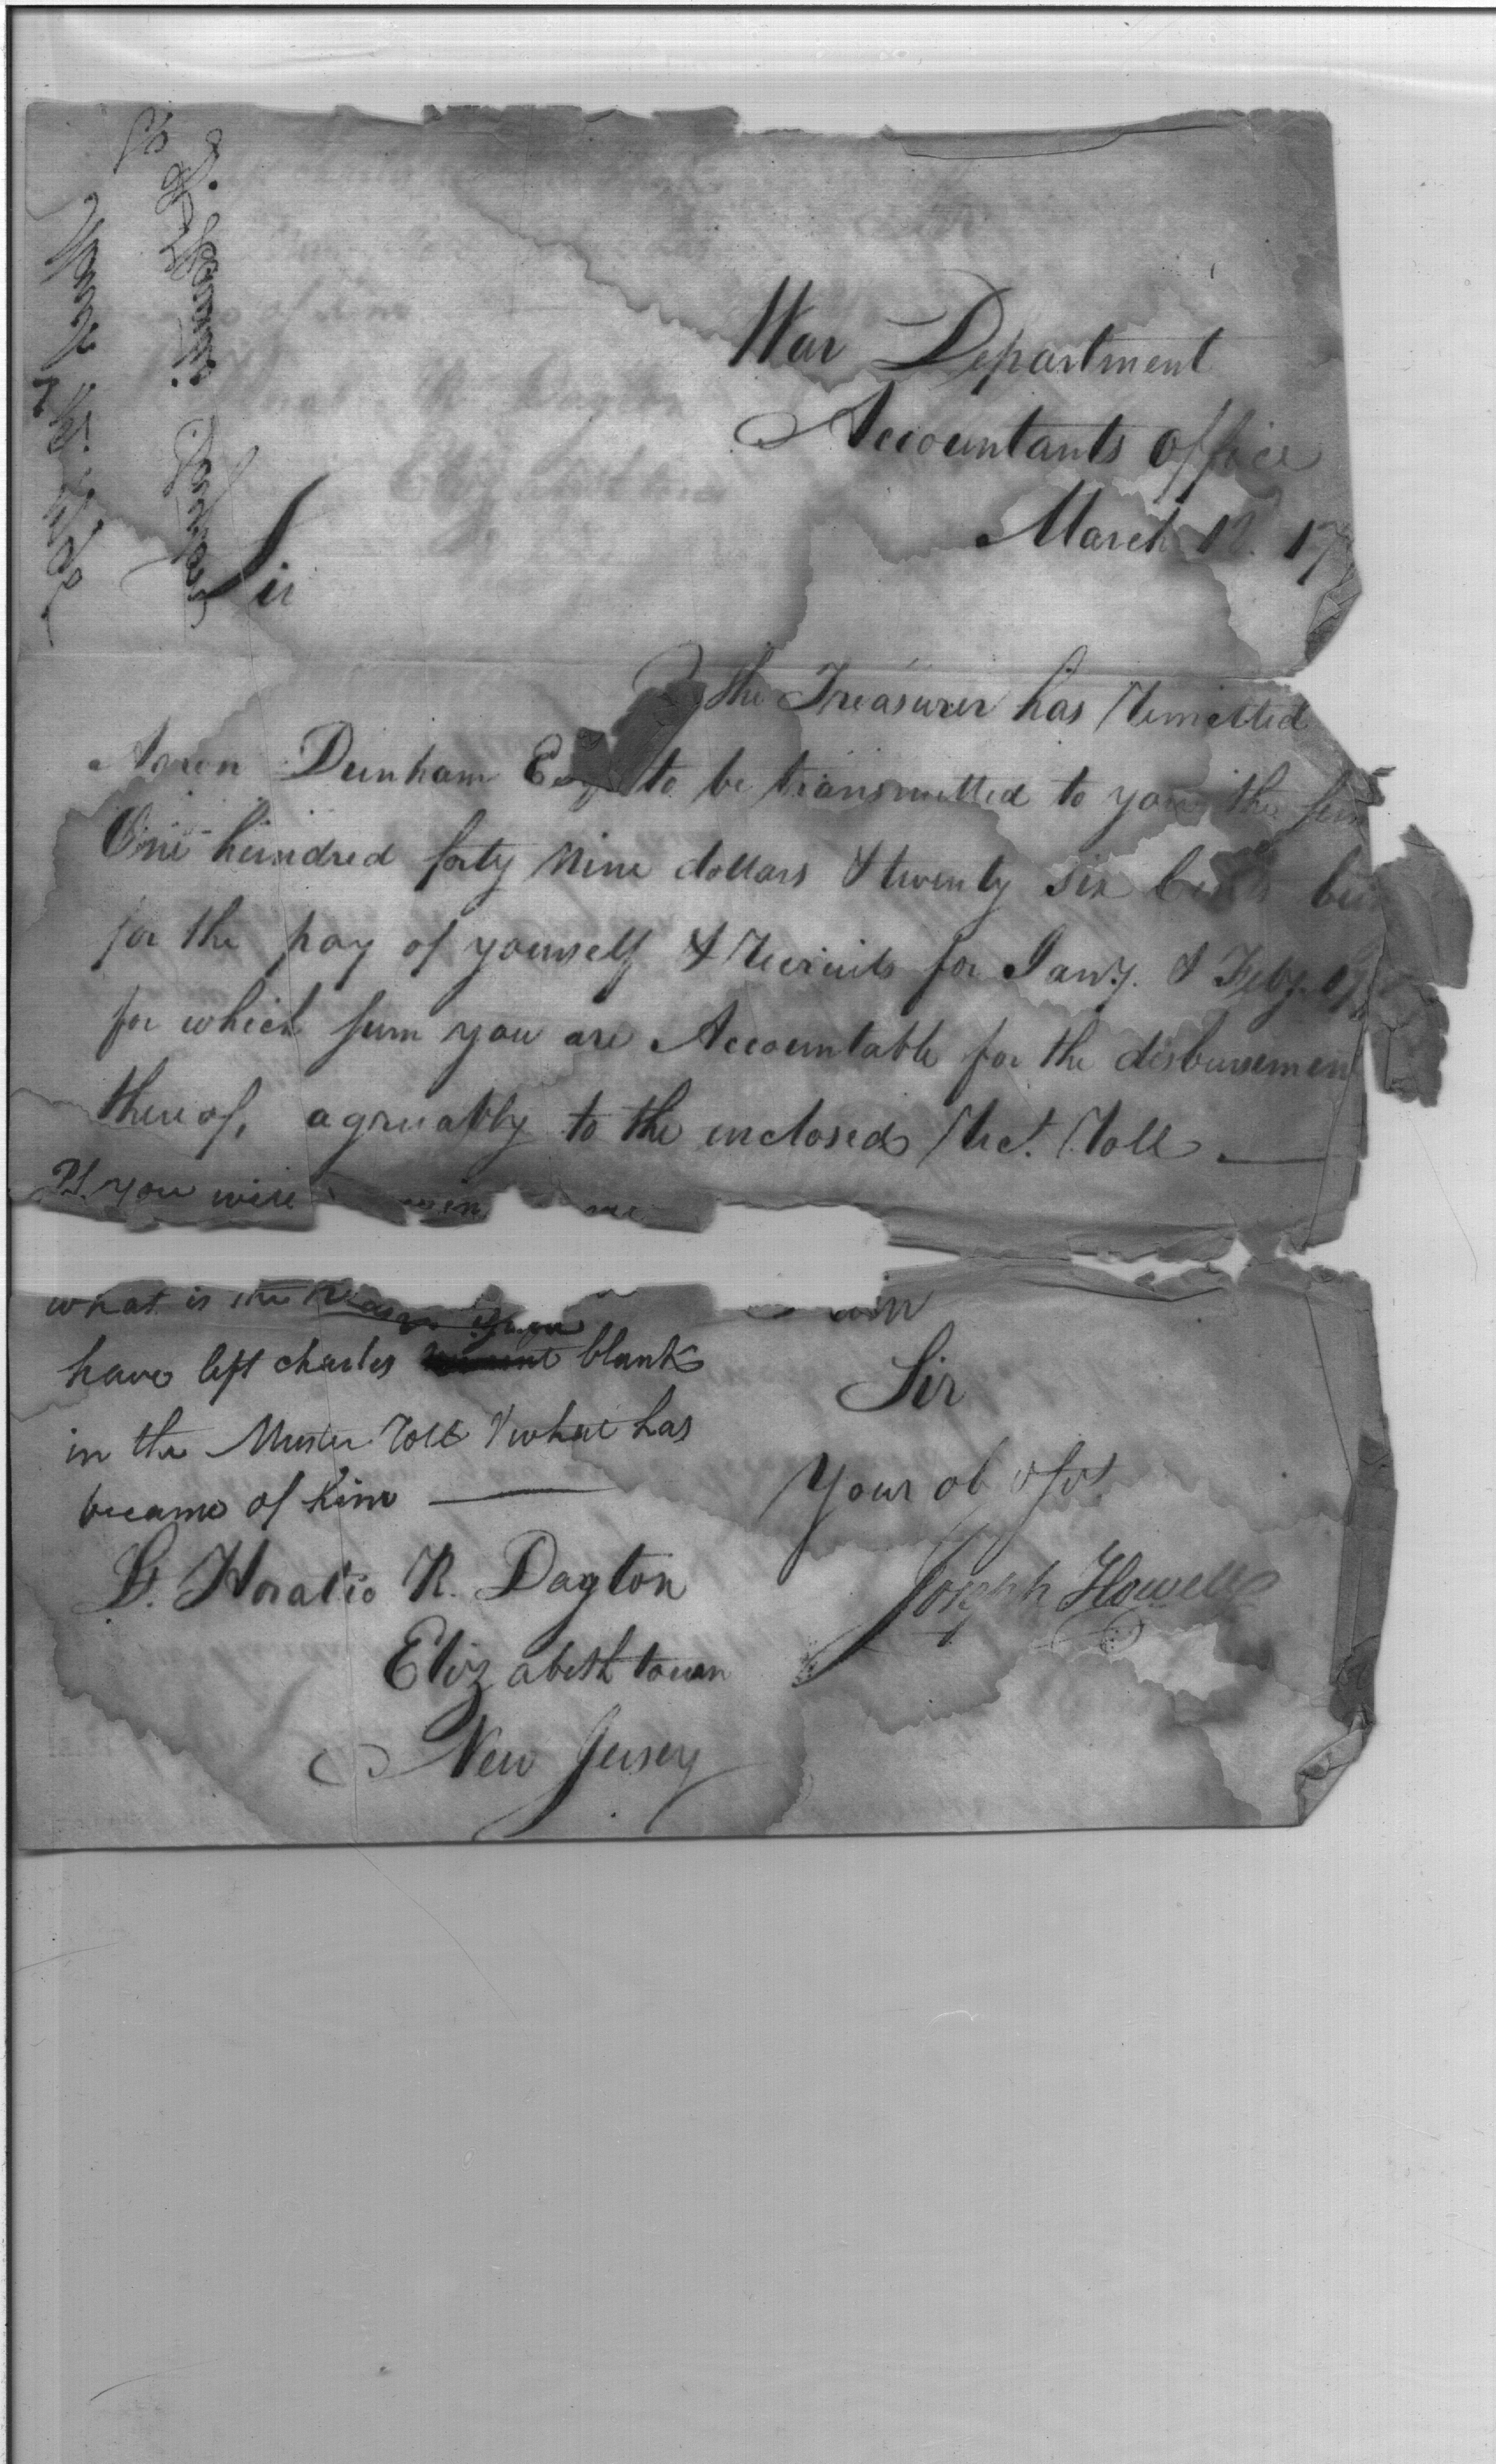 War Department
Accountants Office
March 12. 17
Sir
The Treasurer has Remitted
Aaron Dunham Esqr to be transmitted to you the sum
One hundred forty Nine dollars & twenty six Cents bei
for the pay of yourself & Recruits for Jany. & Feby.
for which sum you are Accountable for the disbursemen
thereof, agreeably to the enclosed Rect. Roll
PS. you will
what is the Reason you
have left charles blank
in the Muster Roll & what has
became of him
Sir
Your ob Sert
Joseph Howell
Lt. Horatio R. Dayton
Elizabeth town
New Jersey